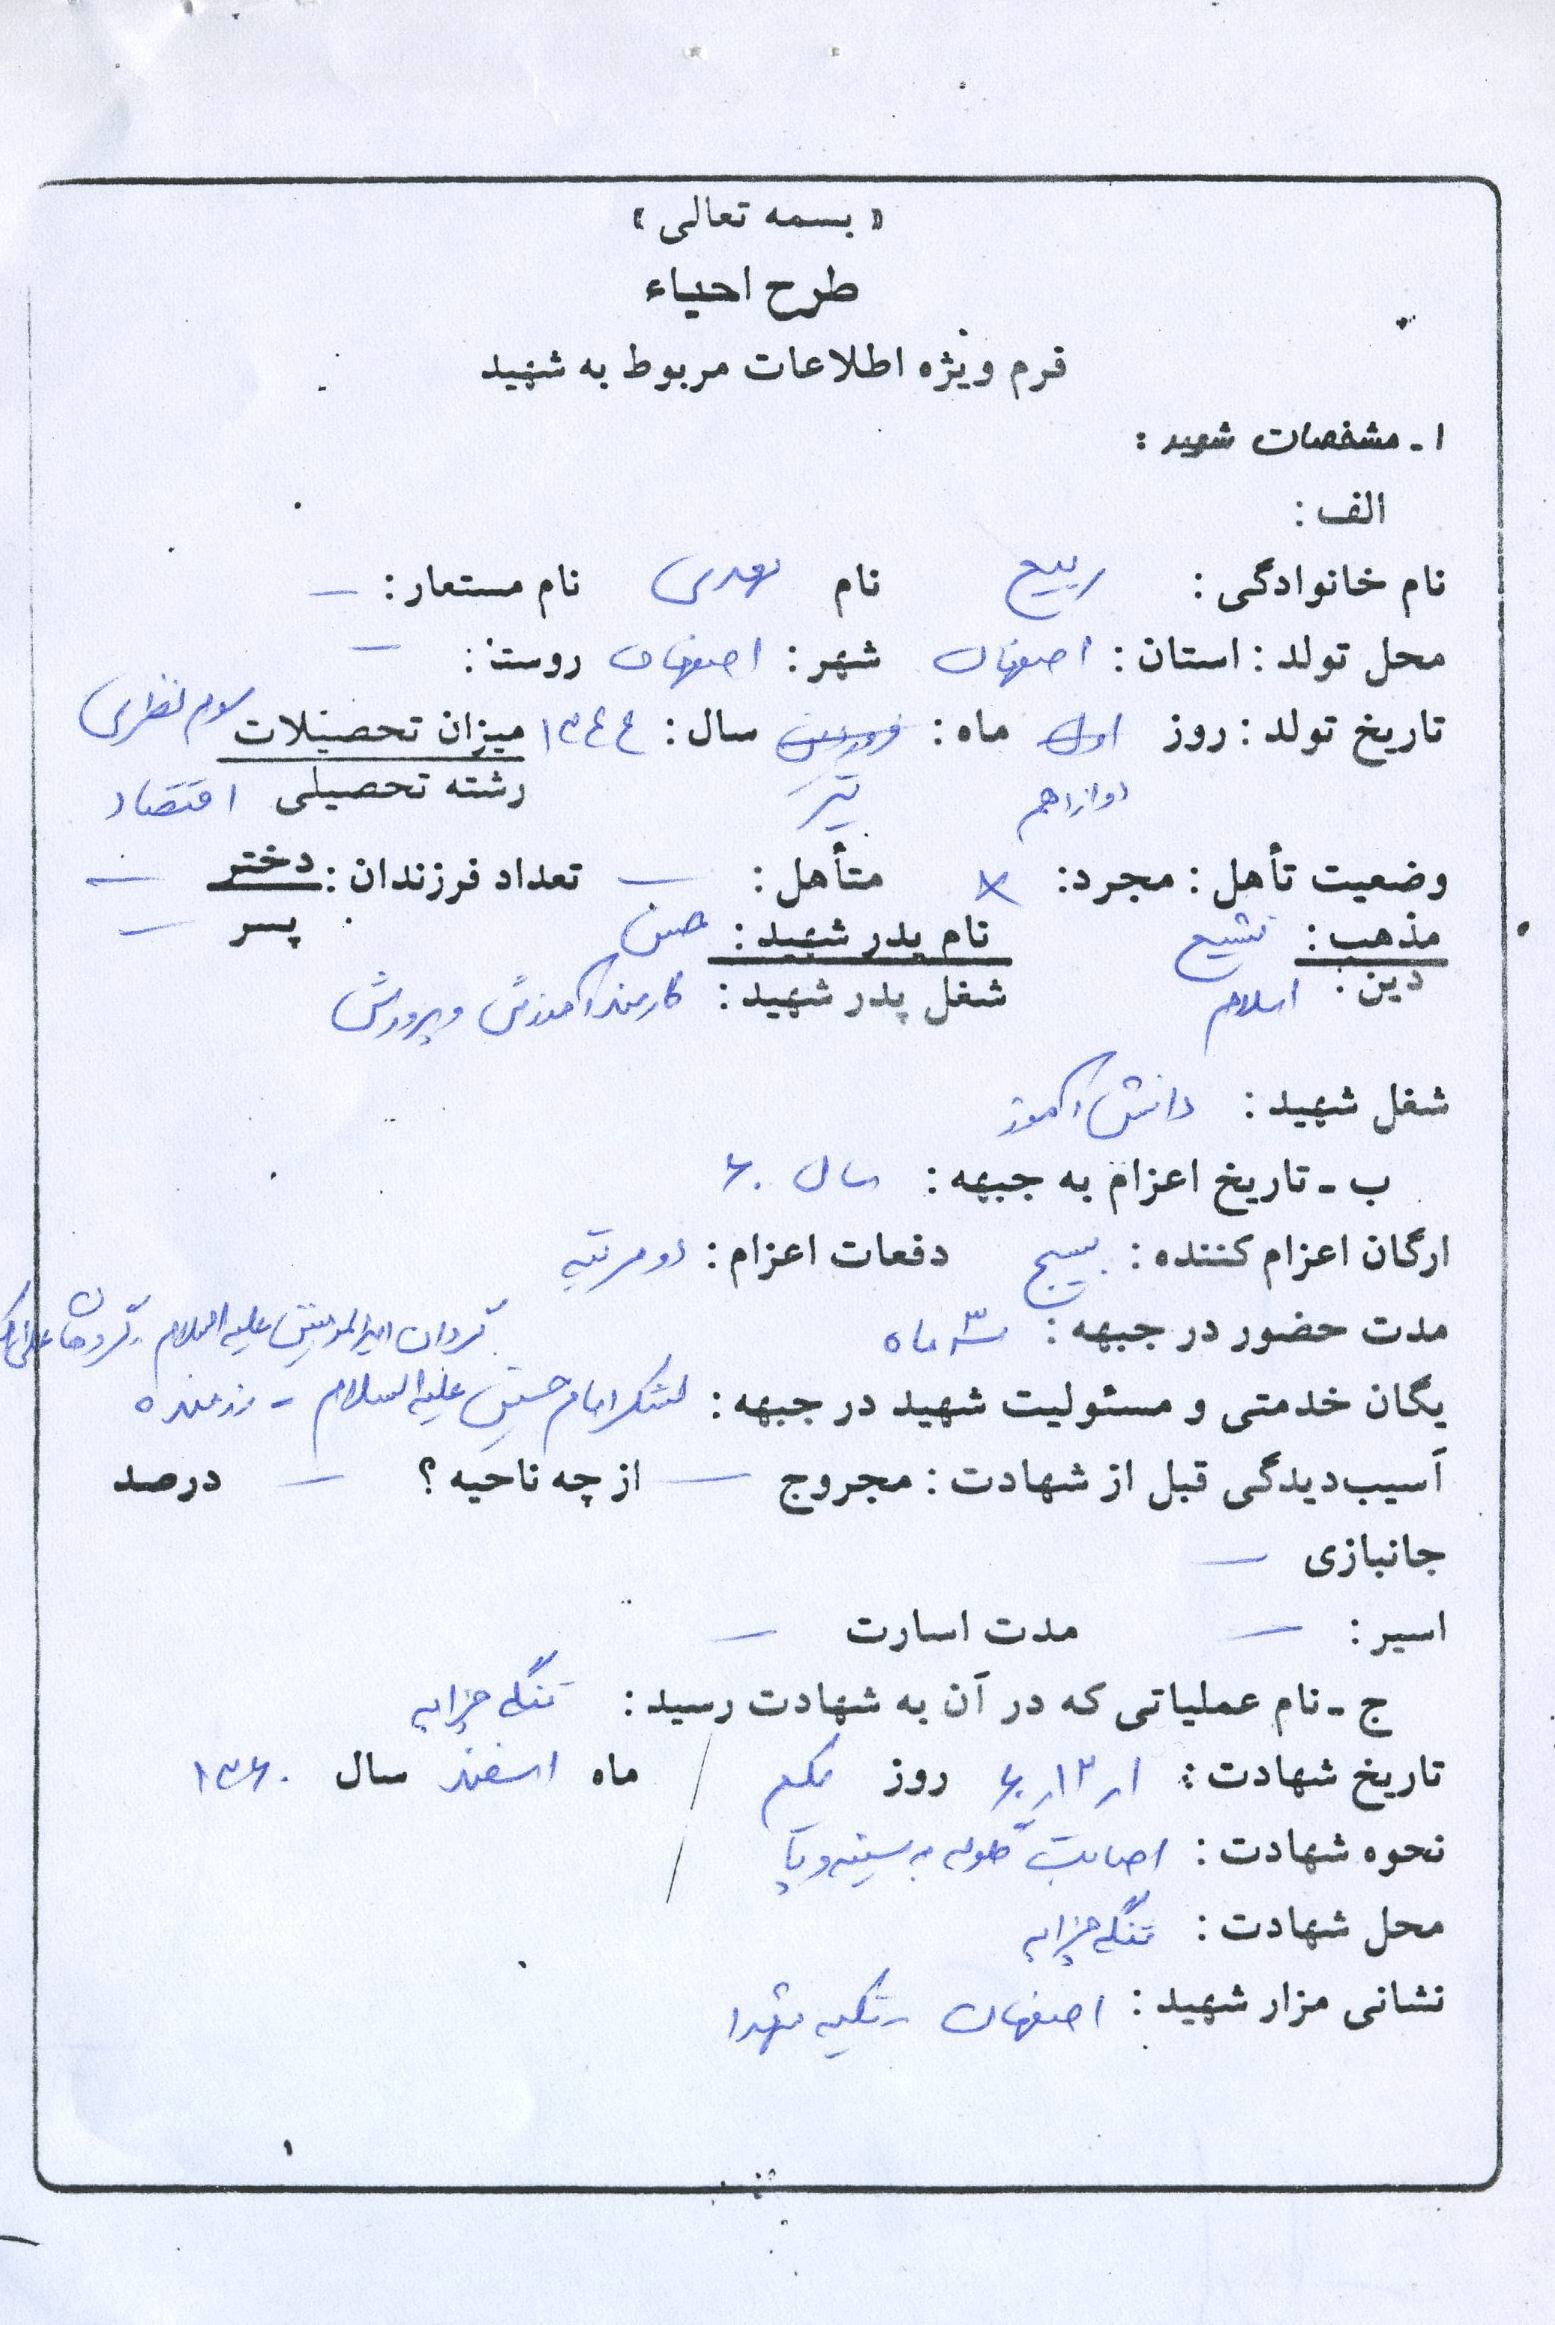 « بسمه تعالی »
طرح احیاء
فرم ویژه اطلاعات مربوط به شهید
۱ـ مشخصات شهید :
الف :
نام خانوادگی : ربیع نام مهدی نام مستعار : ـ
محل تولد : استان : اصفهان شهر : اصفهان روستا : ـ
تاریخ تولد : روز اول ماه : فروردین سال : ۱۳۴۴ میزان تحصیلات سوم نظری
دوازدهم تیر رشته تحصیلی اقتصاد
وضعیت تأهل : مجرد : × متأهل : ـ تعداد فرزندان : دختر ـ
مذهب : تشیع نام پدر شهید : حسن پسر ـ
دین : اسلام شغل پدر شهید : کارمند آموزش و پرورش
شغل شهید : دانش آموز
ب ـ تاریخ اعزام به جبهه : سال ۶۰
ارگان اعزام کننده : بسیج دفعات اعزام : دو مرتبه
مدت حضور در جبهه : ۳ ماه گردان امیرالمومنین علیه السلام
یگان خدمتی و مسئولیت شهید در جبهه : لشکر امام حسین علیه السلام - رزمنده
آسیب‌دیدگی قبل از شهادت : مجروح ـ از چه ناحیه ؟ ـ درصد
جانبازی ـ
اسیر : ـ مدت اسارت ـ
ج ـ نام عملیاتی که در آن به شهادت رسید : تنگه چزابه
تاریخ شهادت : ۱ر۱۲ر۶۰ روز یکم / ماه اسفند سال ۱۳۶۰
نحوه شهادت : اصابت گلوله به سینه و پا
محل شهادت : تنگه چزابه
نشانی مزار شهید : اصفهان - تکیه شهدا
۱